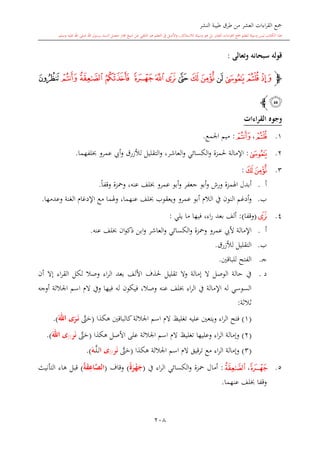 جمع القراءات العشر من طرق طيبة النشر
قوله سبحانه وتعالى :
﴿ وَإِذْ قُلْتُمْ يَـٰمُوسَىٰ لَن نُّؤْمِنَ لَكَ حَتَّىٰ نَرَى ٱللَّهَ جَهْرَةً فَأَخَذَتْكُمُ ٱلصَّـٰعِقَةُ وَأَنتُمْ تَنظُرُونَ
﴿٥٥﴾
وجوه القراءات
١. قُلْتُمْ، وَأَنتُمْ : ميم الجمع.
٢. يَـٰمُوسَىٰ : الإمالة لحمزة والكسائي والعاشر، والتقليل للأزرق وأبي عمرو بخلفهما.
٣. نُّؤْمِنَ لَكَ :
أ . أبدل الهمزة ورش وأبو جعفر وأبو عمرو بخلف عنه، وحمزة وقفاً.
ب. وأدغم النون في اللام أبو عمرو ويعقوب بخلف عنهما، ولهما مع الإدغام الغنة وعدمها.
٤. نَرَى (وقفا): ألف بعد راء، فيها ما يلي :
أ . الإمالة لأبي عمرو وحمزة والكسائي والعاشر وابن ذكوان بخلف عنه.
ب. التقليل للأزرق.
ج. الفتح للباقين.
د . في حالة الوصل لا إمالة ولا تقليل لحذف الألف بعد الراء وصلا لكل القراء إلا أن
السوسي له الإمالة في الراء بخلف عنه وصلا، فيكون له فيها وفي لام اسم الجلالة أوجه
ثلاثة:
(١) فتح الراء ويتعين عليه تغليظ لام اسم الجلالة كالباقين هكذا (حَتَّىٰ نَرَى اللَّهَ).
(٢) وإمالة الراء وعليها تغليظ لام اسم الجلالة على الأصل هكذا (حَتَّىٰ نَرَى اللَّهَ).
(٣) وإمالة الراء مع ترقيق لام اسم الجلالة هكذا (حَتَّىٰ نَرَى اللَّهَ).
٥. جَهْرَةً، ٱلصَّـٰعِقَةُ : أمال حمزة والكسائي الراء في (جَهْرَة) وقاف (الصَّاعِقَة) قبل هاء التأنيث
وقفا بخلف عنهما.
٢٠٨